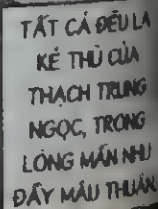 TẤT CẢ ĐỀU LÀ
KẺ THÙ CỦA
THẠCH TRUNG
NGỌC, TRONG
LÒNG MẪN NHU
ĐẦY MÂU THUẪN